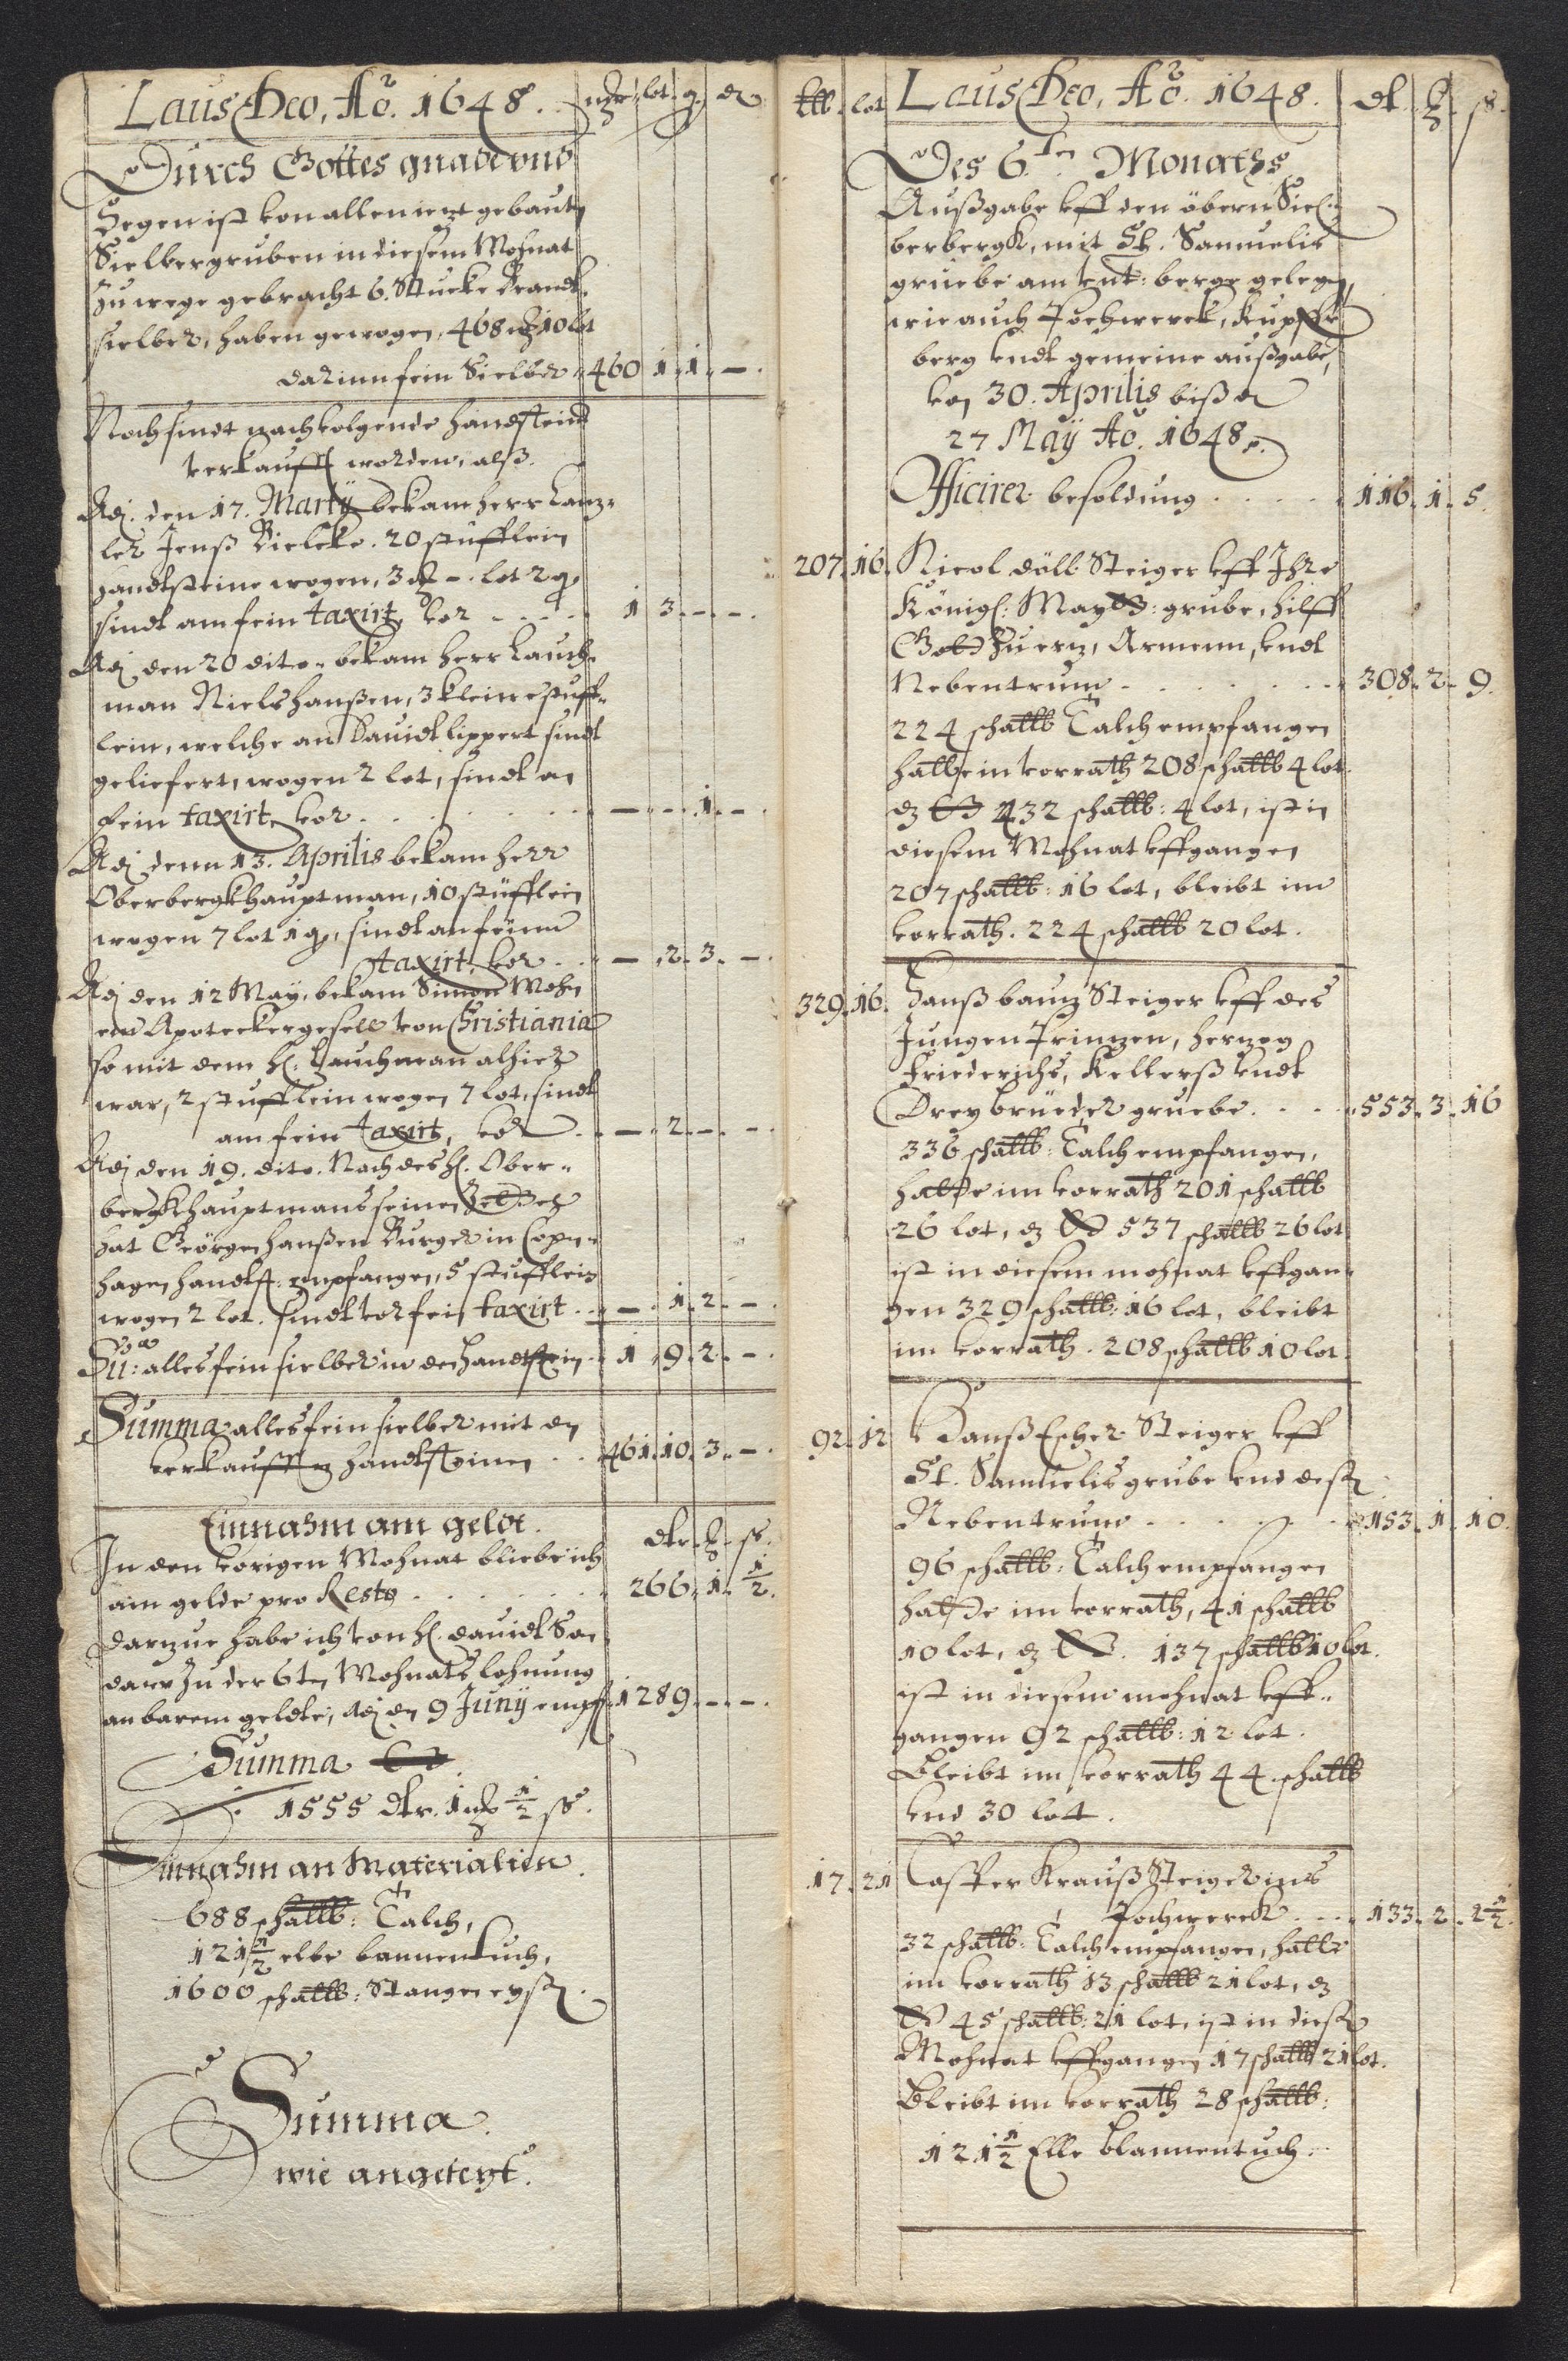 Laus Deo, Ao. 1648. mk lot q d
Durch Gottes gnade vnd
Segen ist von allen iezt gebautn
Sielbergruben in diesem Mohnat
Zu wege gebracht 6. Stucke Brandt
sielber, haben gewogen, 468 mk 10 lot
darinn fein Sielber 460 1 1 –
Noch sindt nachvolgende handtstein
verkaufft worden, alß.
Adj. den 17. Martij bekam herr Canz-
ler Jenß Bielcke. 20 stufflein
handtsteine wogen, 3 mk – lot 2 q
sindt am fein taxirt, vor 1 3 – –
Adj den 20 dito. bekam herr Lauch-
man Niels hanßen, 3 kleine stuff-
lein, welche an Dauidt lippert sindt
geliefert, wogen 2 lot, sindt an
fein taxirt, vor – – 1 –
Adj denn 13. Aprilis bekam herr
Oberbergkhauptman, 10 stufflein
wogen 7 lot 1 q, sindt an feinn
taxirt, vor – 2 3 –
Adj den 12 May, bekam Simon Mohn
ein Apoteckergesell von Christiania
so mit dem H: Lauchman alhier
war, 2 stufflein wogen 7 lot, sindt
am fein taxirt, vor – 2 – –
Adj den 19. dito. Nach des H. Ober-
bergkhauptmans seinen
hat Geörgen hanßen Burger in Copn-
hagen handtst: empfangen, 5 stufflein
wogen 2 lot. sindt vor fein taxirt – 1 2 –
Su: alles fein sielber in den handtstein 1 9 2 –
Summa alles fein sielber mit den
verkaufften handtsteinen 461 10 3 –
Einnahm am geldt.
dlr. ß.
In den vorigen Mohnat bliebe ich
am gelde pro Resto 266 1 1/2
darzue habe ich von H. dauidt
Zu der 6ten Mohnats lohnung
an barem geldte, Adj den 9 Junij empf. 1289 – –
Summa
1555 dlr. 1 1/2 ß.
Einnahm an Materialien.
688 schallb: Talch,
121 1/2 elle
1600 schallb: Stangen eyßen.
Summa
wie angetegt.
lb lot Laus Deo, Ao. 1648. dl ß
Des 6ten Monaths
Außgabe vff den öbern Siel-
berbergk, mit St. Samuelis
gruebe am vnt: berge gelegen,
wie auch Pochwerck, Kupffer
berg vndt gemeine außgabe,
von 30. Aprilis biß
27 Maÿ Ao. 1648.
Officirer besoldung 116 1 5
207 16 Nicol döll Steiger vff Ihre
Königl: Maytt: grube, hilff
Gott Zu ernz, Armenn, vndt
Nebentrum 308 2 9
224 schallb Talch empfangen
hatte in vorrath 208 schallb 4 lot.
432 schallb: 4 lot, ist in
diesem Mohnat vffgangen
207 schallb: 16 lot, bleibt im
vorrath. 224 schallb 20 lot.
329 16 Hanß Steiger vff des
Jungen Printzen, hertzog
Friederichs, Kellerß vndt
Drey brüeder gruebe. 553 3 16
336 schallb: Talch empfangen,
hatte im vorrath 201 schallb
26 lot, 537 schallb 26 lot
ist in diesem mohnat vffgan-
gen 329 schallb: 16 lot, bleibt
im vorrath. 208 schallb 10 lot.
92 12 Hanß Escher Steiger vff
St. Samuelis grube vnd deßen
Nebentrum 153 1 10
96 schallb: Talch empfangen
hatte im vorrath, 41 schallb
10 lot, 137 schallb 10 lot.
ist in diesem mohnat vff-
gangen 92 schallb: 12 lot.
Bleibt im vorrath 44 schallb
vnd 30 lott.
17 21 Casper Krauß Steiger ins
Pochwerck 133 2 2 1/2
32 schallb: Talch empfangen, hatte
im vorrath 13 schallb 21 lot,
45 schallb: 21 lot, ist in dießen
Mohnat vffgangen 17 schallb 21 lot.
Bleibt im vorrath 28 schallb:
121 1/2 Elle blannentuch.